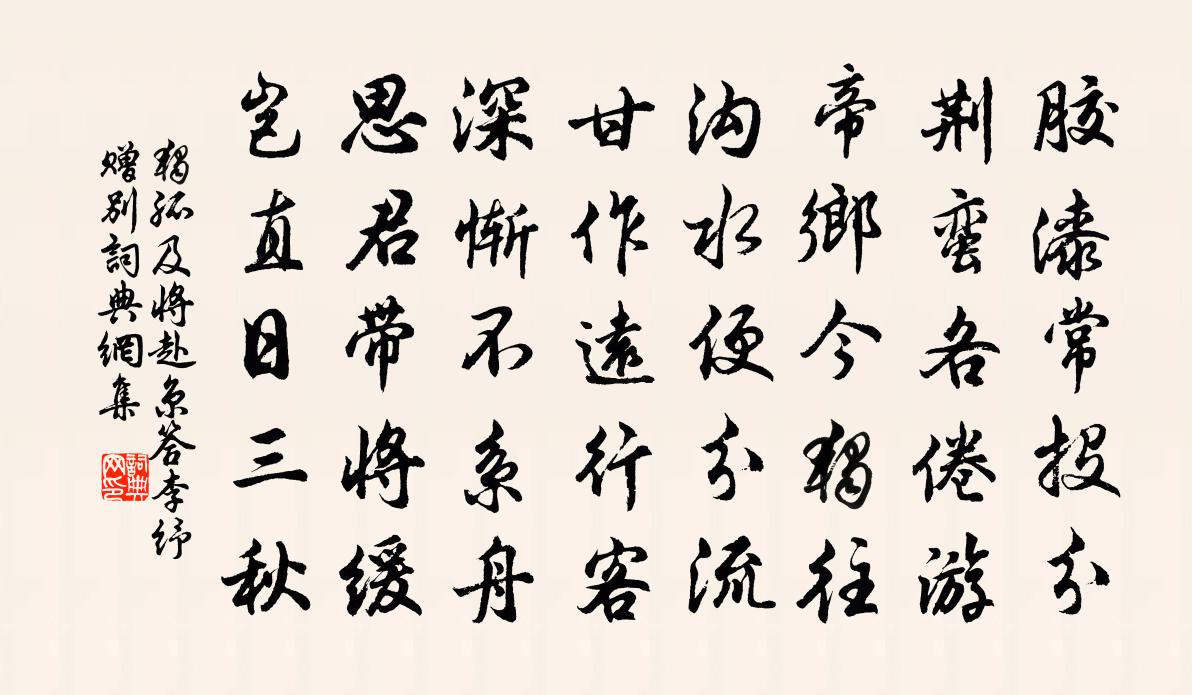 胶漆常投分
荆蛮各倦游
帝鄉今獨往
沟水便分流
甘作遠行客
深惭不系舟
思君带将缓
岂直日三秋
獨孤及将赴京答李纾
赠别詞典網集
詞典
网印